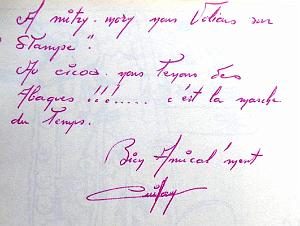 A mitry-mory nous Volions sur
Stampe".
Au cicoa. nous Tenons des
Abaques !!!..... c'est la marche
du Temps.
Bien Amical'ment